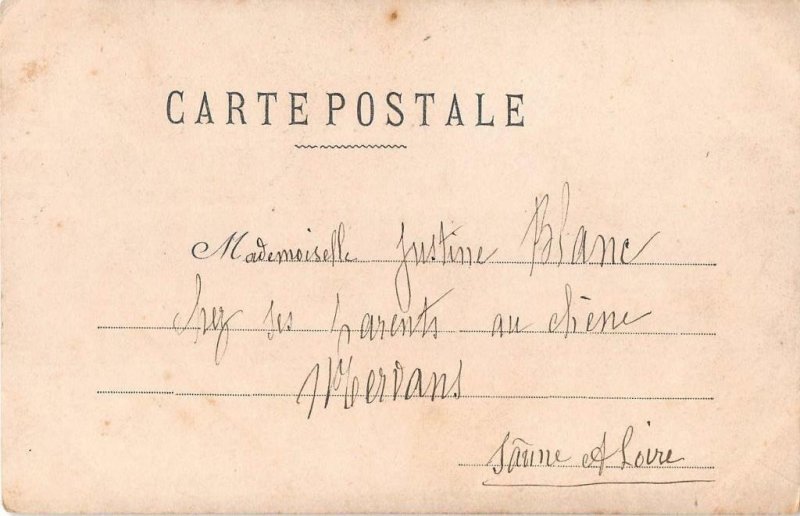 CARTE POSTALE
Mademoiselle Justine Blanc
chez ses parents au chêne
Mervans
Saône & Loire